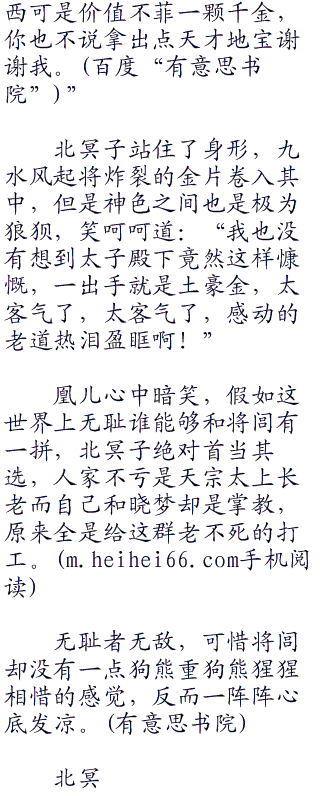 西可是价值不菲一颗千金，
你也不说拿出点天才地宝谢
谢我。(百度“有意思书
院”)”
北冥子站住了身形，九
水风起将炸裂的金片卷入其
中，但是神色之间也是极为
狼狈，笑呵呵道：“我也没
有想到太子殿下竟然这样慷
慨，一出手就是土豪金，太
客气了，太客气了，感动的
老道热泪盈眶啊！”
凰儿心中暗笑，假如这
世界上无耻谁能够和将闾有
一拼，北冥子绝对首当其
选，人家不亏是天宗太上长
老而自己和晓梦却是掌教，
原来全是给这群老不死的打
工。(m.heihei66.com手机阅
读)
无耻者无敌，可惜将闾
却没有一点狗熊重狗熊猩猩
相惜的感觉，反而一阵阵心
底发凉。(有意思书院)
北冥